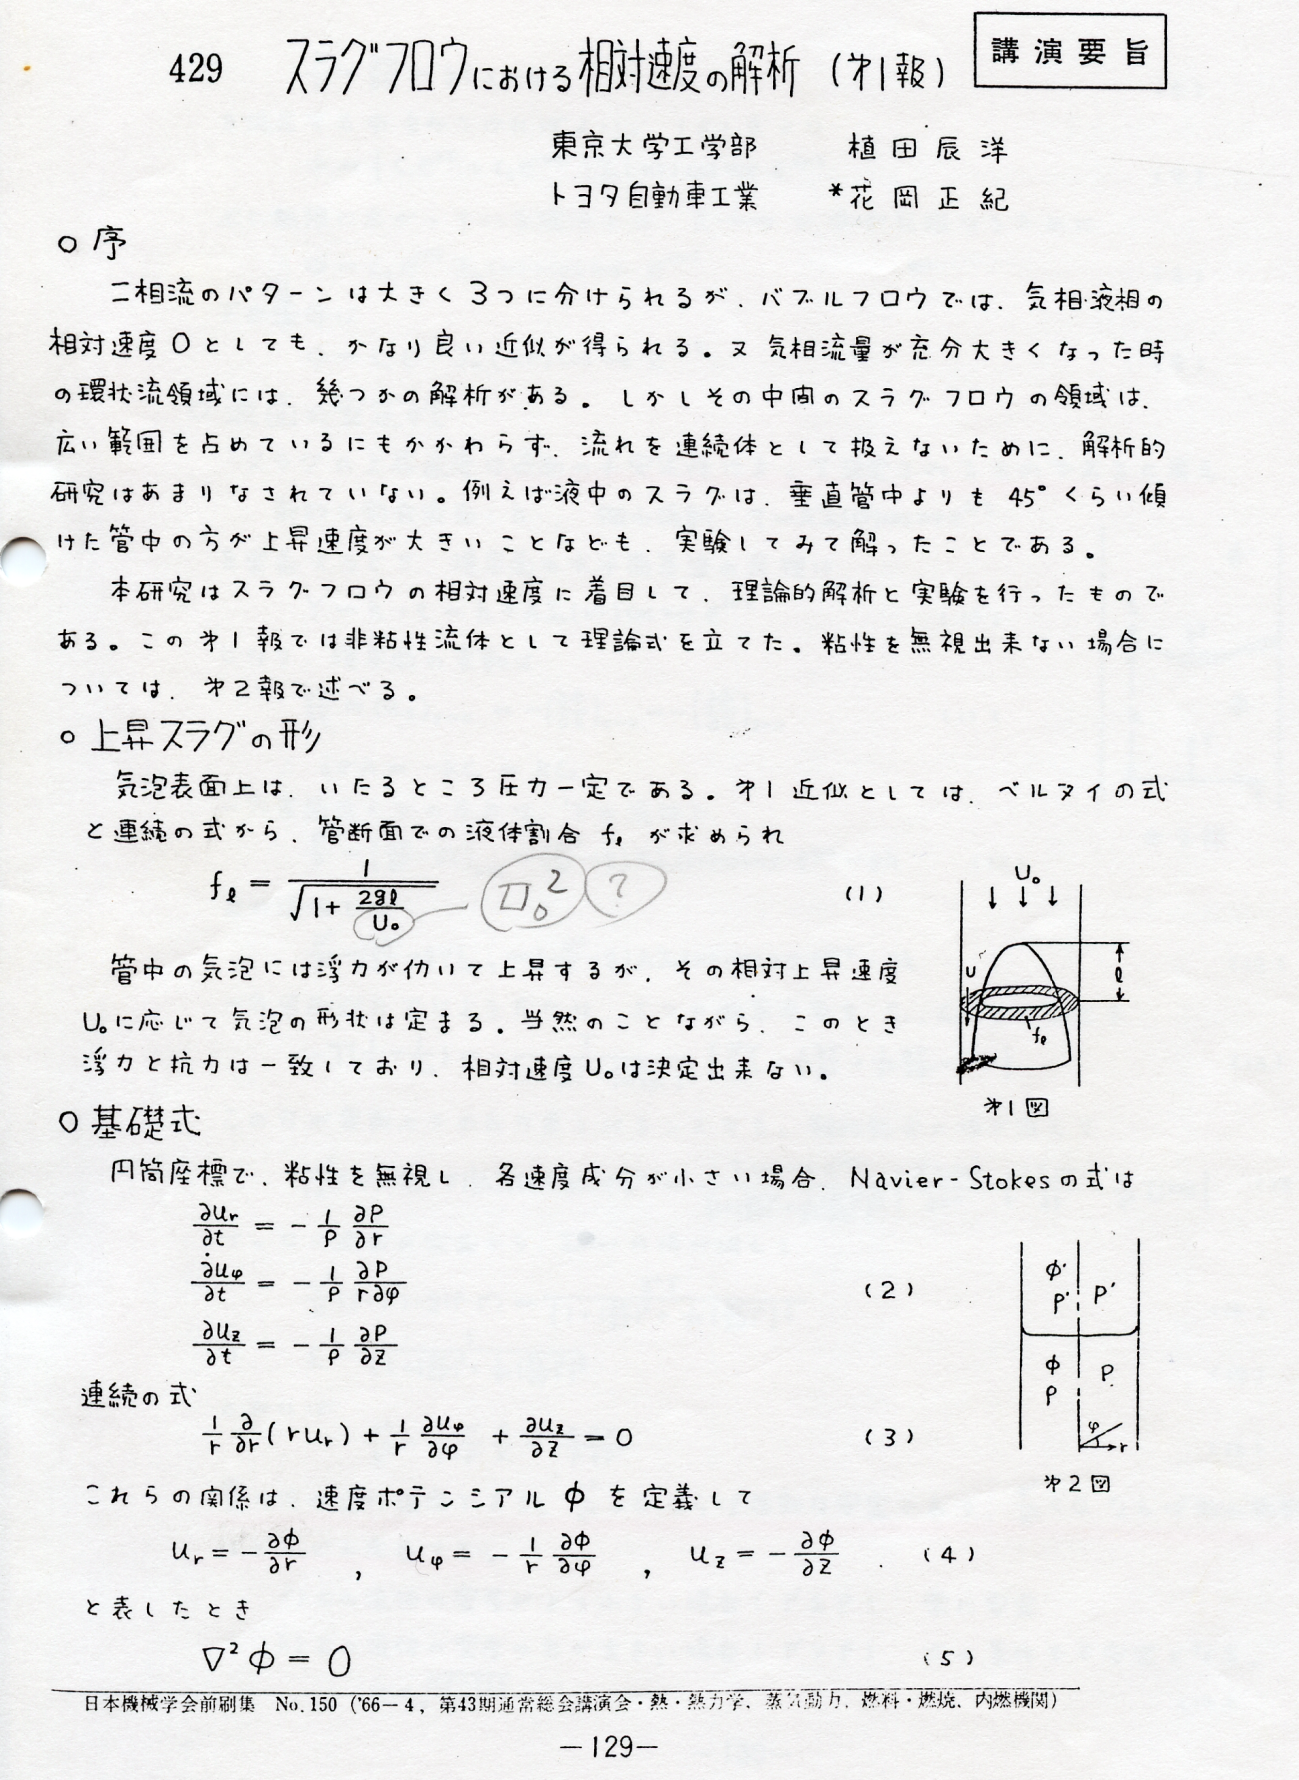 429 スラグフロウにおける相対速度の解析 (才1報) 講演要旨
東京大学工学部 植田辰洋
トヨタ自動車工業 *花岡正紀
○ 序
二相流のパターンは大きく3つに分けられるが、バブルフロウでは、気相・液相の
相対速度0としても、かなり良い近似が得られる。又気相流量が充分大きくなった時
の環状流領域には、幾つかの解析がある。しかしその中間のスラグフロウの領域は、
広い範囲を占めているにもかかわらず、流れを連続体として扱えないために、解析的
研究はあまりなされていない。例えば液中のスラグは、垂直管中よりも45°くらい傾
けた管中の方が上昇速度が大きいことなども、実験してみて解ったことである。
本研究はスラグフロウの相対速度に着目して、理論的解析と実験を行ったもので
ある。この才1報では非粘性流体として理論式を立てた。粘性を無視出来ない場合に
ついては、才2報で述べる。
○ 上昇スラグの形
気泡表面上は、いたるところ圧力一定である。才1近似としては、ベルヌイの式
と連続の式から、管断面での液体割合 fℓ が求められ
fℓ = 1 / √(1 + 2gℓ/U₀) U₀² ? (1)
管中の気泡には浮力が仂いて上昇するが、その相対上昇速度
U₀に応じて気泡の形状は定まる。当然のことながら、このとき
浮力と抗力は一致しており、相対速度U₀は決定出来ない。
U₀
u
ℓ
fℓ
才1図
○ 基礎式
円筒座標で、粘性を無視し、各速度成分が小さい場合、Navier-Stokesの式は
∂ur/∂t = - 1/ρ ∂P/∂r
∂uφ/∂t = - 1/ρ ∂P/r∂φ (2)
∂uz/∂t = - 1/ρ ∂P/∂z
連続の式
1/r ∂/∂r (rur) + 1/r ∂uφ/∂φ + ∂uz/∂z = 0 (3)
φ' ρ' P'
φ ρ P
φ r
才2図
これらの関係は、速度ポテンシアル Φ を定義して
ur = - ∂Φ/∂r , uφ = - 1/r ∂Φ/∂φ , uz = - ∂Φ/∂z . (4)
と表したとき
∇²Φ = 0 (5)
日本機械学会前刷集 No.150 ('66-4, 第43期通常総会講演会・熱・熱力学、蒸気動力、燃料・燃焼、内燃機関)
—129—